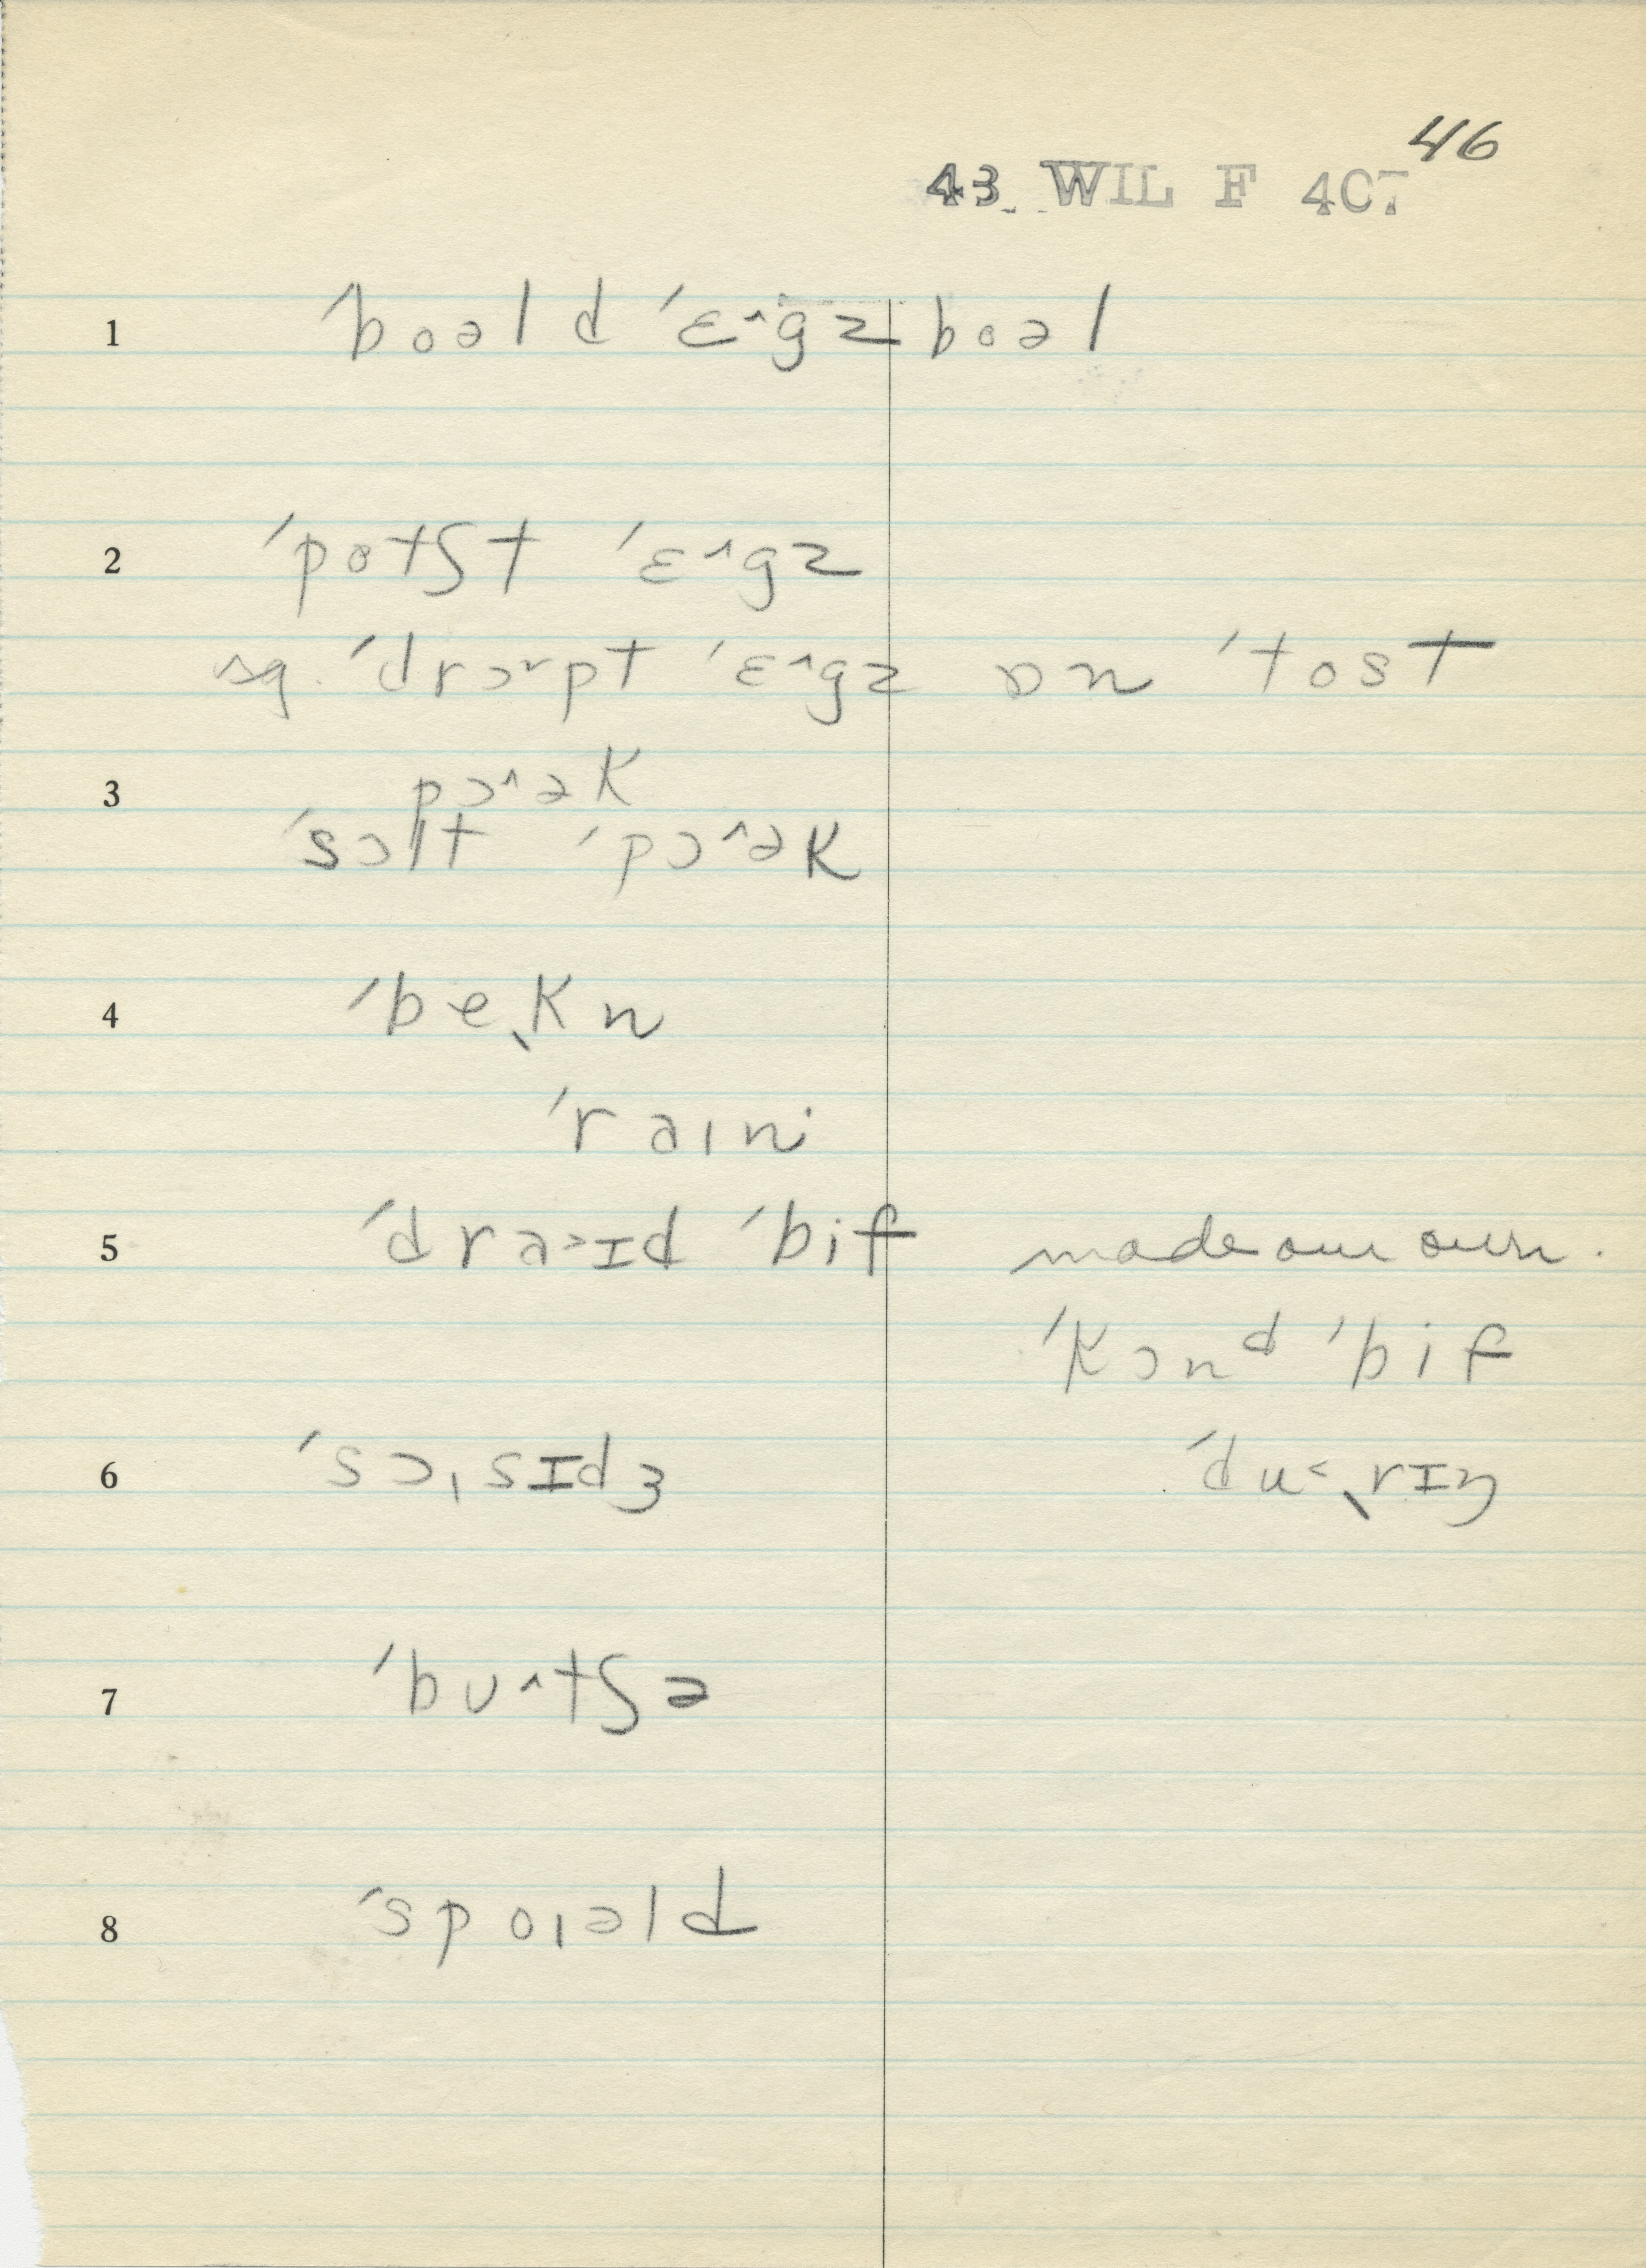 46
43 WIL F 407
1 ˈboəld ˈɛ˄gz boəl
2 ˈpotʃt ˈɛ˄gz
ˈdrɔ˅pt ˈɛ˄gz ɒn ˈtost
3 pɔ˄ək
ˈsɔlt ˈpɔ˄ək
4 ˈbeˌkn
ˈraɪni
5 ˈdra˃ɪd ˈbif made our own.
ˈkɔnᵈ ˈbif
6 ˈsɔˌsɪdʒ ˈdu˂ˌrɪŋ
7 ˈbʊ˄tʃə
8 ˈspoɪəld